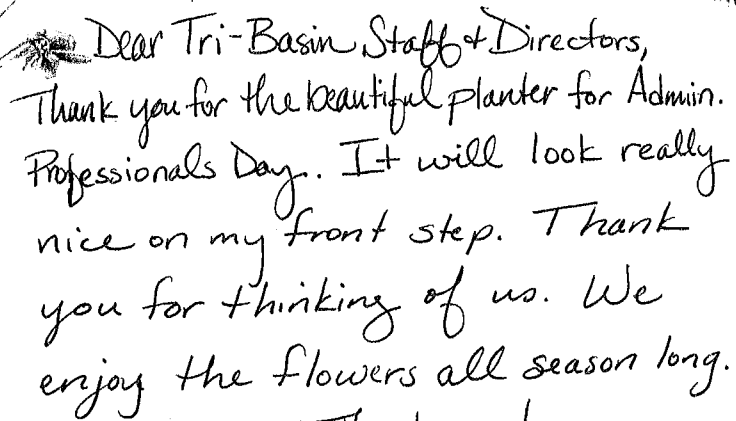 Dear Tri-Basin Staff & Directors,
Thank you for the beautiful planter for Admin.
Professionals Day. It will look really
nice on my front step. Thank
you for thinking of us. We
enjoy the flowers all season long.